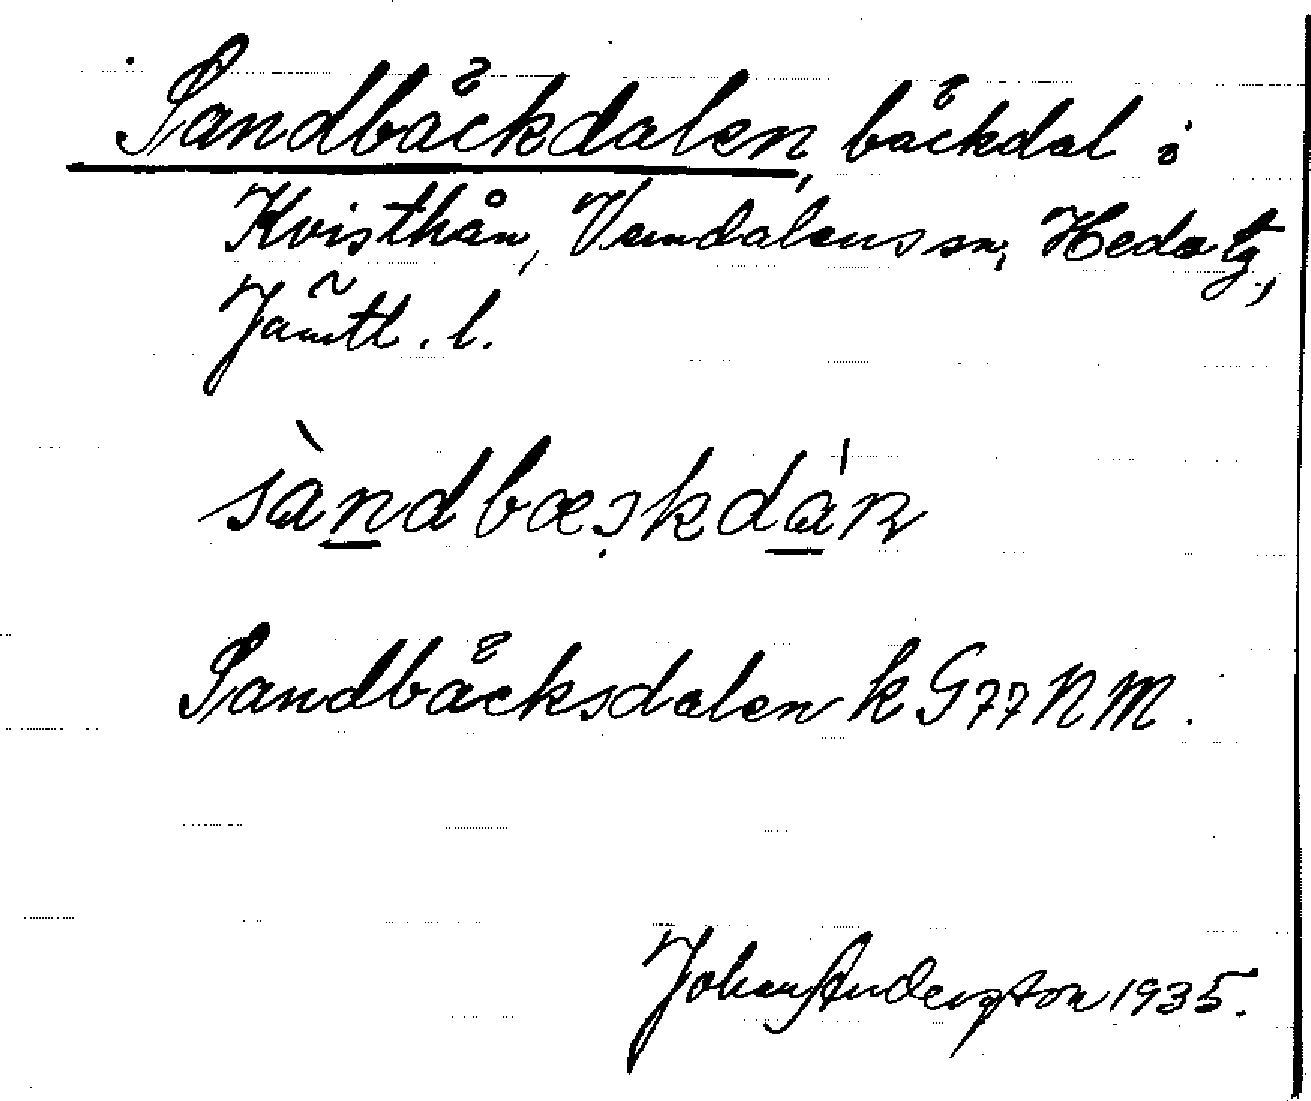 Sandbäckdalen, bäckdal i
Kvisthån, Vemdalens sn, Heda tg,
Jämtl. l.
sàndbæckdán
Sandbäcksdalen k G77 NM.
Johan Anderzton 1935.